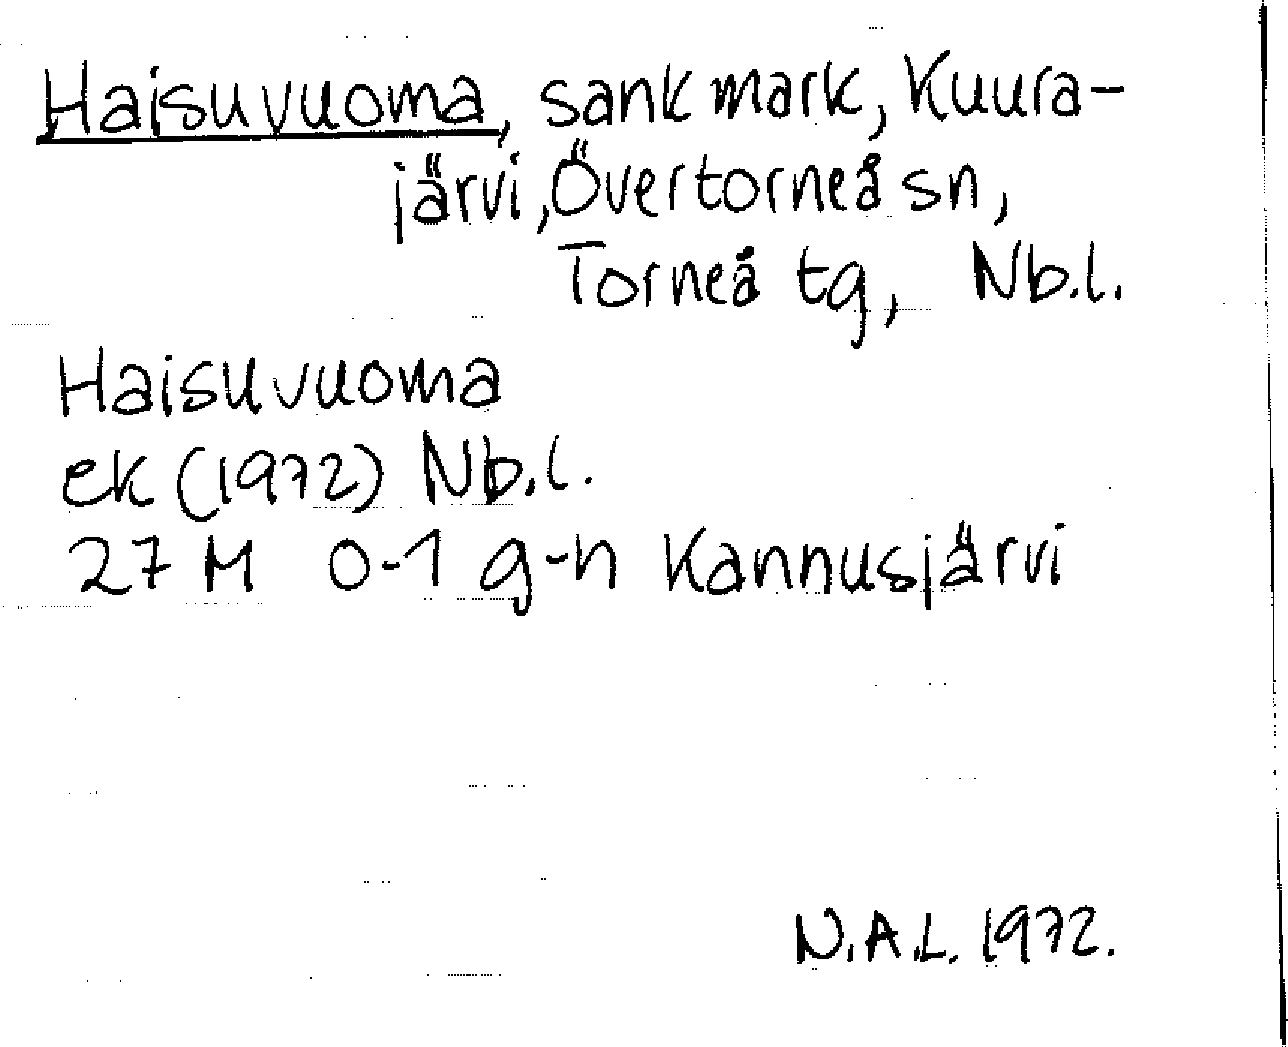 Haisuvuoma, sank mark, Kuura-
järvi, Övertorneå sn,
Torneå tg, Nb.l.
Haisuvuoma
ek (1972) Nb.l.
27 M 0-1 g-h Kannusjärvi
N.A.L. 1972.